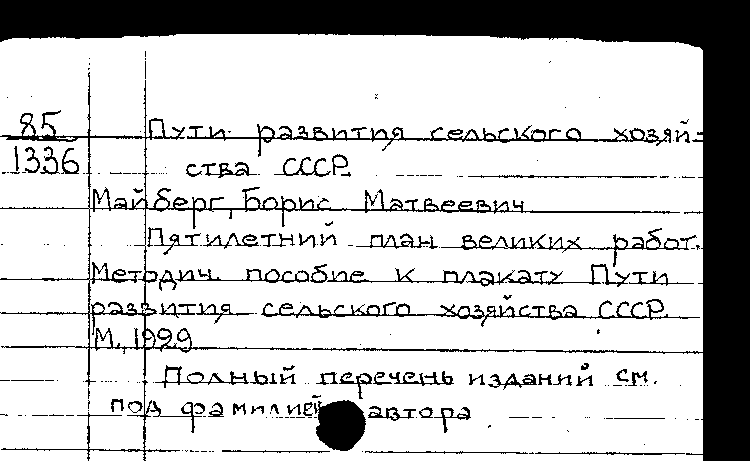 85
1336
Пути развития сельского хозяй-
ства СССР.
Майберг, Борис Матвеевич
Пятилетний план великих работ.
Методич. пособие к плакату Пути
развития сельского хозяйства СССР.
М., 1929
Полный перечень изданий см.
под фамилией автора